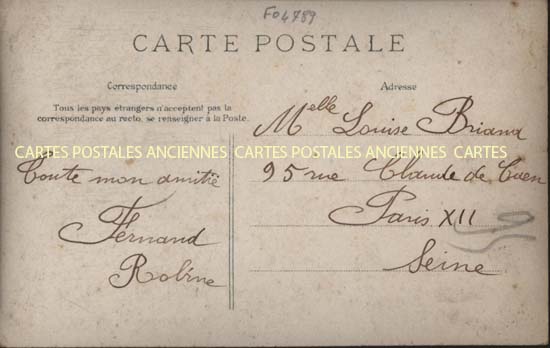 F04789
CARTE POSTALE
Correspondance
Tous les pays étrangers n'acceptent pas la
correspondance au recto, se renseigner à la Poste.
Toute mon amitié
Fernand
Robine
Adresse
Melle Louise Briand
CARTES POSTALES ANCIENNES CARTES POSTALES ANCIENNES CARTES
95 rue Claude de Caen
Paris XII
Seine